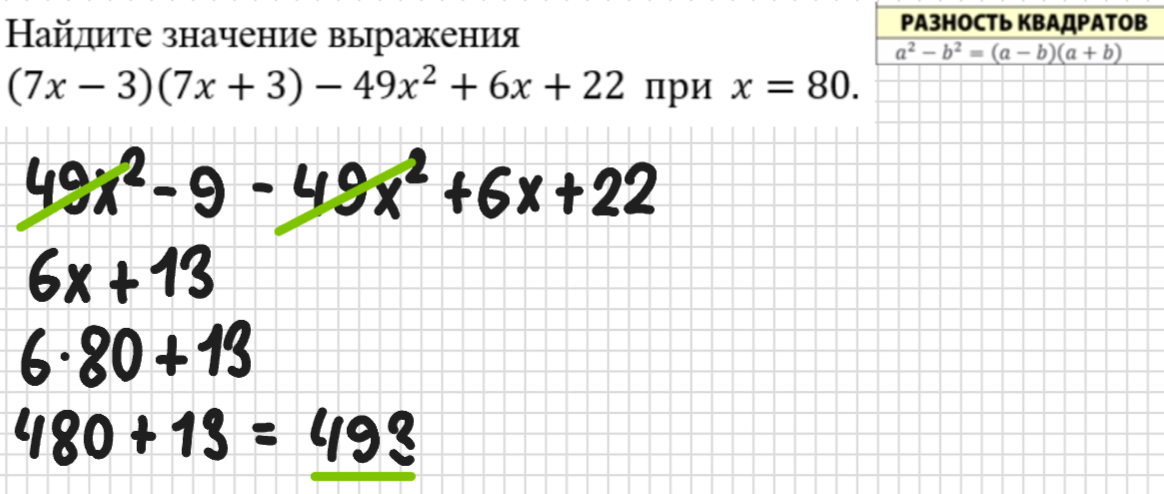 Найдите значение выражения
(7x − 3)(7x + 3) − 49x² + 6x + 22 при x = 80.
РАЗНОСТЬ КВАДРАТОВ
a² − b² = (a − b)(a + b)
49x² - 9 - 49x² + 6x + 22
6x + 13
6·80 + 13
480 + 13 = 493